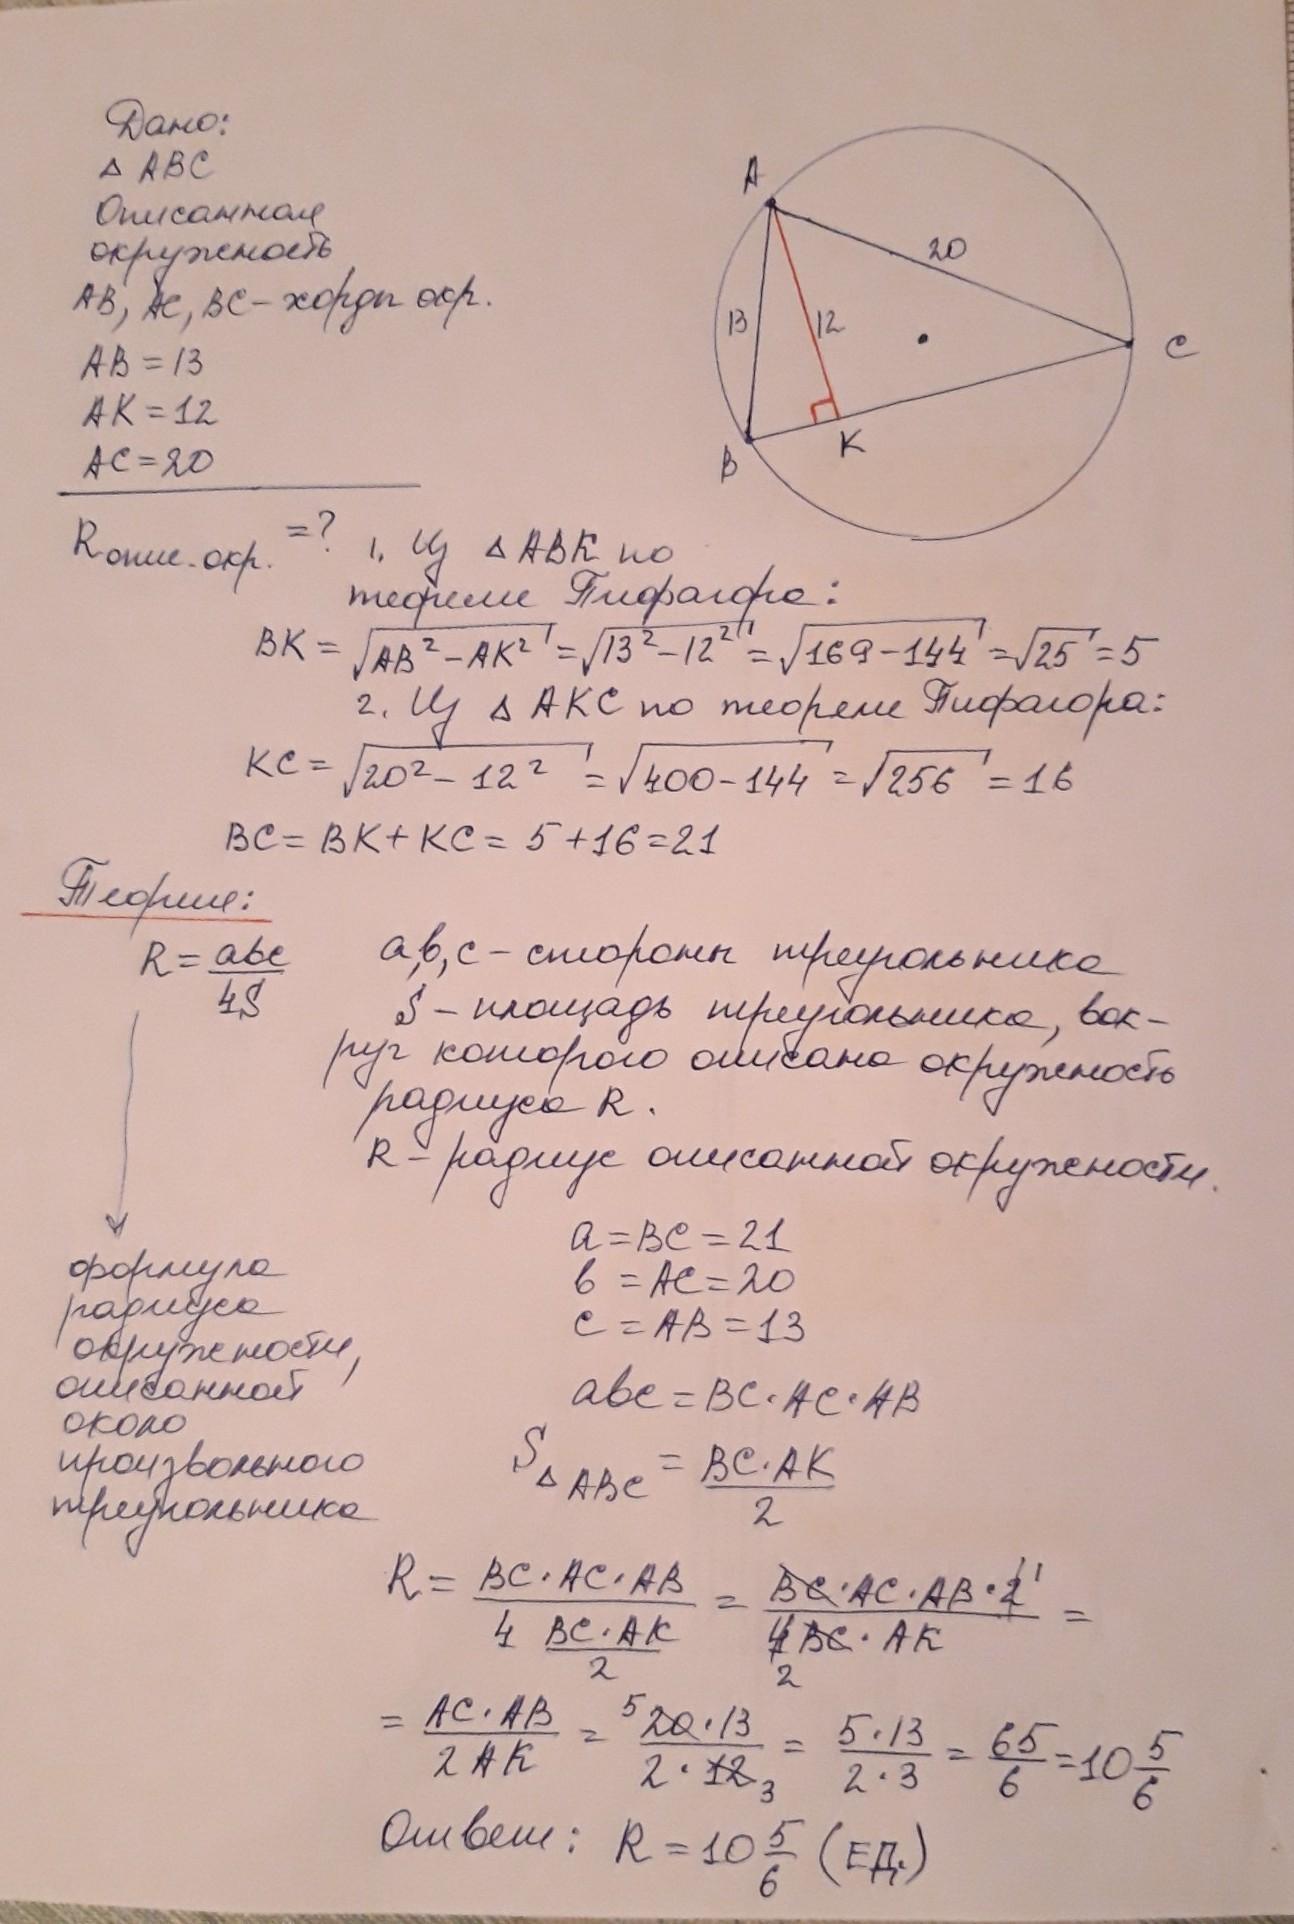 Дано:
△ ABC
Описанная
окружность
AB, AC, BC – хорды окр.
AB = 13
AK = 12
AC = 20
A
20
13
12
C
B
K
R опис. окр. = ?
1. Из △ ABK по
теореме Пифагора:
BK = √(AB² – AK²) = √(13² – 12²) = √(169 – 144) = √25 = 5
2. Из △ AKC по теореме Пифагора:
KC = √(20² – 12²) = √(400 – 144) = √256 = 16
BC = BK + KC = 5 + 16 = 21
Теория:
R = abc / 4S
a, b, c – стороны треугольника
S – площадь треугольника, вок-
руг которого описана окружность
радиуса R.
R – радиус описанной окружности.
формула
радиуса
окружности,
описанной
около
произвольного
треугольника
a = BC = 21
b = AC = 20
c = AB = 13
abc = BC · AC · AB
S △ ABC = BC · AK / 2
R = BC · AC · AB / (4 BC · AK / 2) = BC · AC · AB · 2 1 / (4 2 BC · AK) =
= AC · AB / 2 AK = 5 20 · 13 / (2 · 12 3) = 5 · 13 / (2 · 3) = 65 / 6 = 10 5/6
Ответ: R = 10 5/6 (ЕД.)